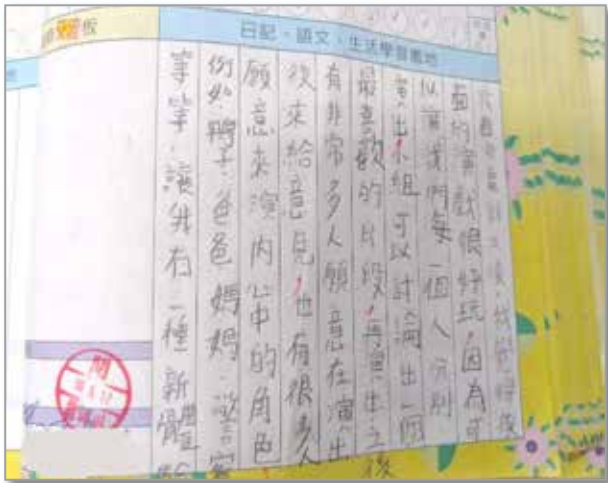 日記、語文、生活學習園地
板
面的演戲很好玩,因為可
以讓我們每一個人分別
演出,小組可以討論出一個
最喜歡的片段,再演出之後
有非常多人願意在演出
後來給意見,也有很多人
願意來演內心中的角色
例如:鴨子、爸爸、媽媽、警察
等等,讓我有一種新體
閱